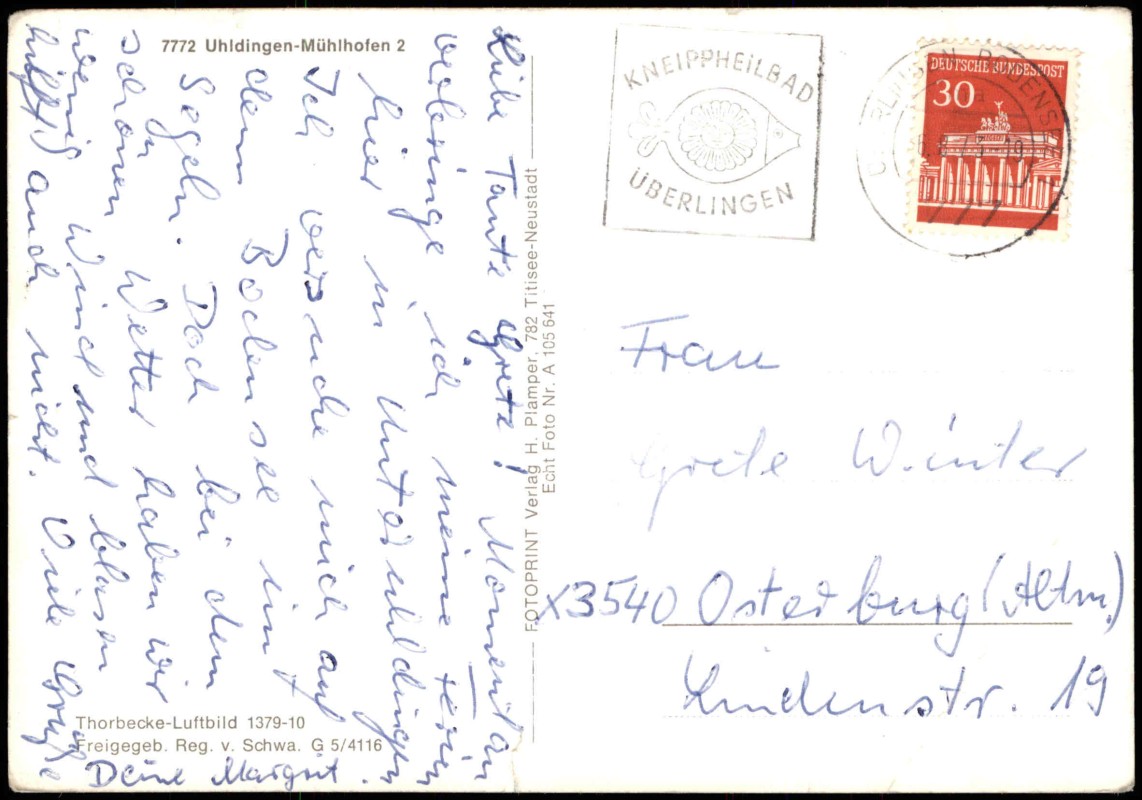 7772 Uhldingen-Mühlhofen 2
Liebe Tante Grete! Momentan
verbringe ich meine Ferien
hier in Unteruhldingen.
Ich versuche mich auf
dem Bodensee im
Segeln. Doch bei dem
schönen Wetter haben wir
wenig Wind und blasen
hilft auch nicht. Viele Grüße
Deine Margrit.
Thorbecke-Luftbild 1379-10
Freigegeb. Reg. v. Schwa. G 5/4116
FOTOPRINT Verlag H. Plamper, 782 Titisee-Neustadt
Echt Foto Nr. A 105 641
KNEIPPHEILBAD
ÜBERLINGEN
DEUTSCHE BUNDESPOST
30
777
Frau
Grete Winter
X3540 Osterburg (Altm.)
Lindenstr. 19